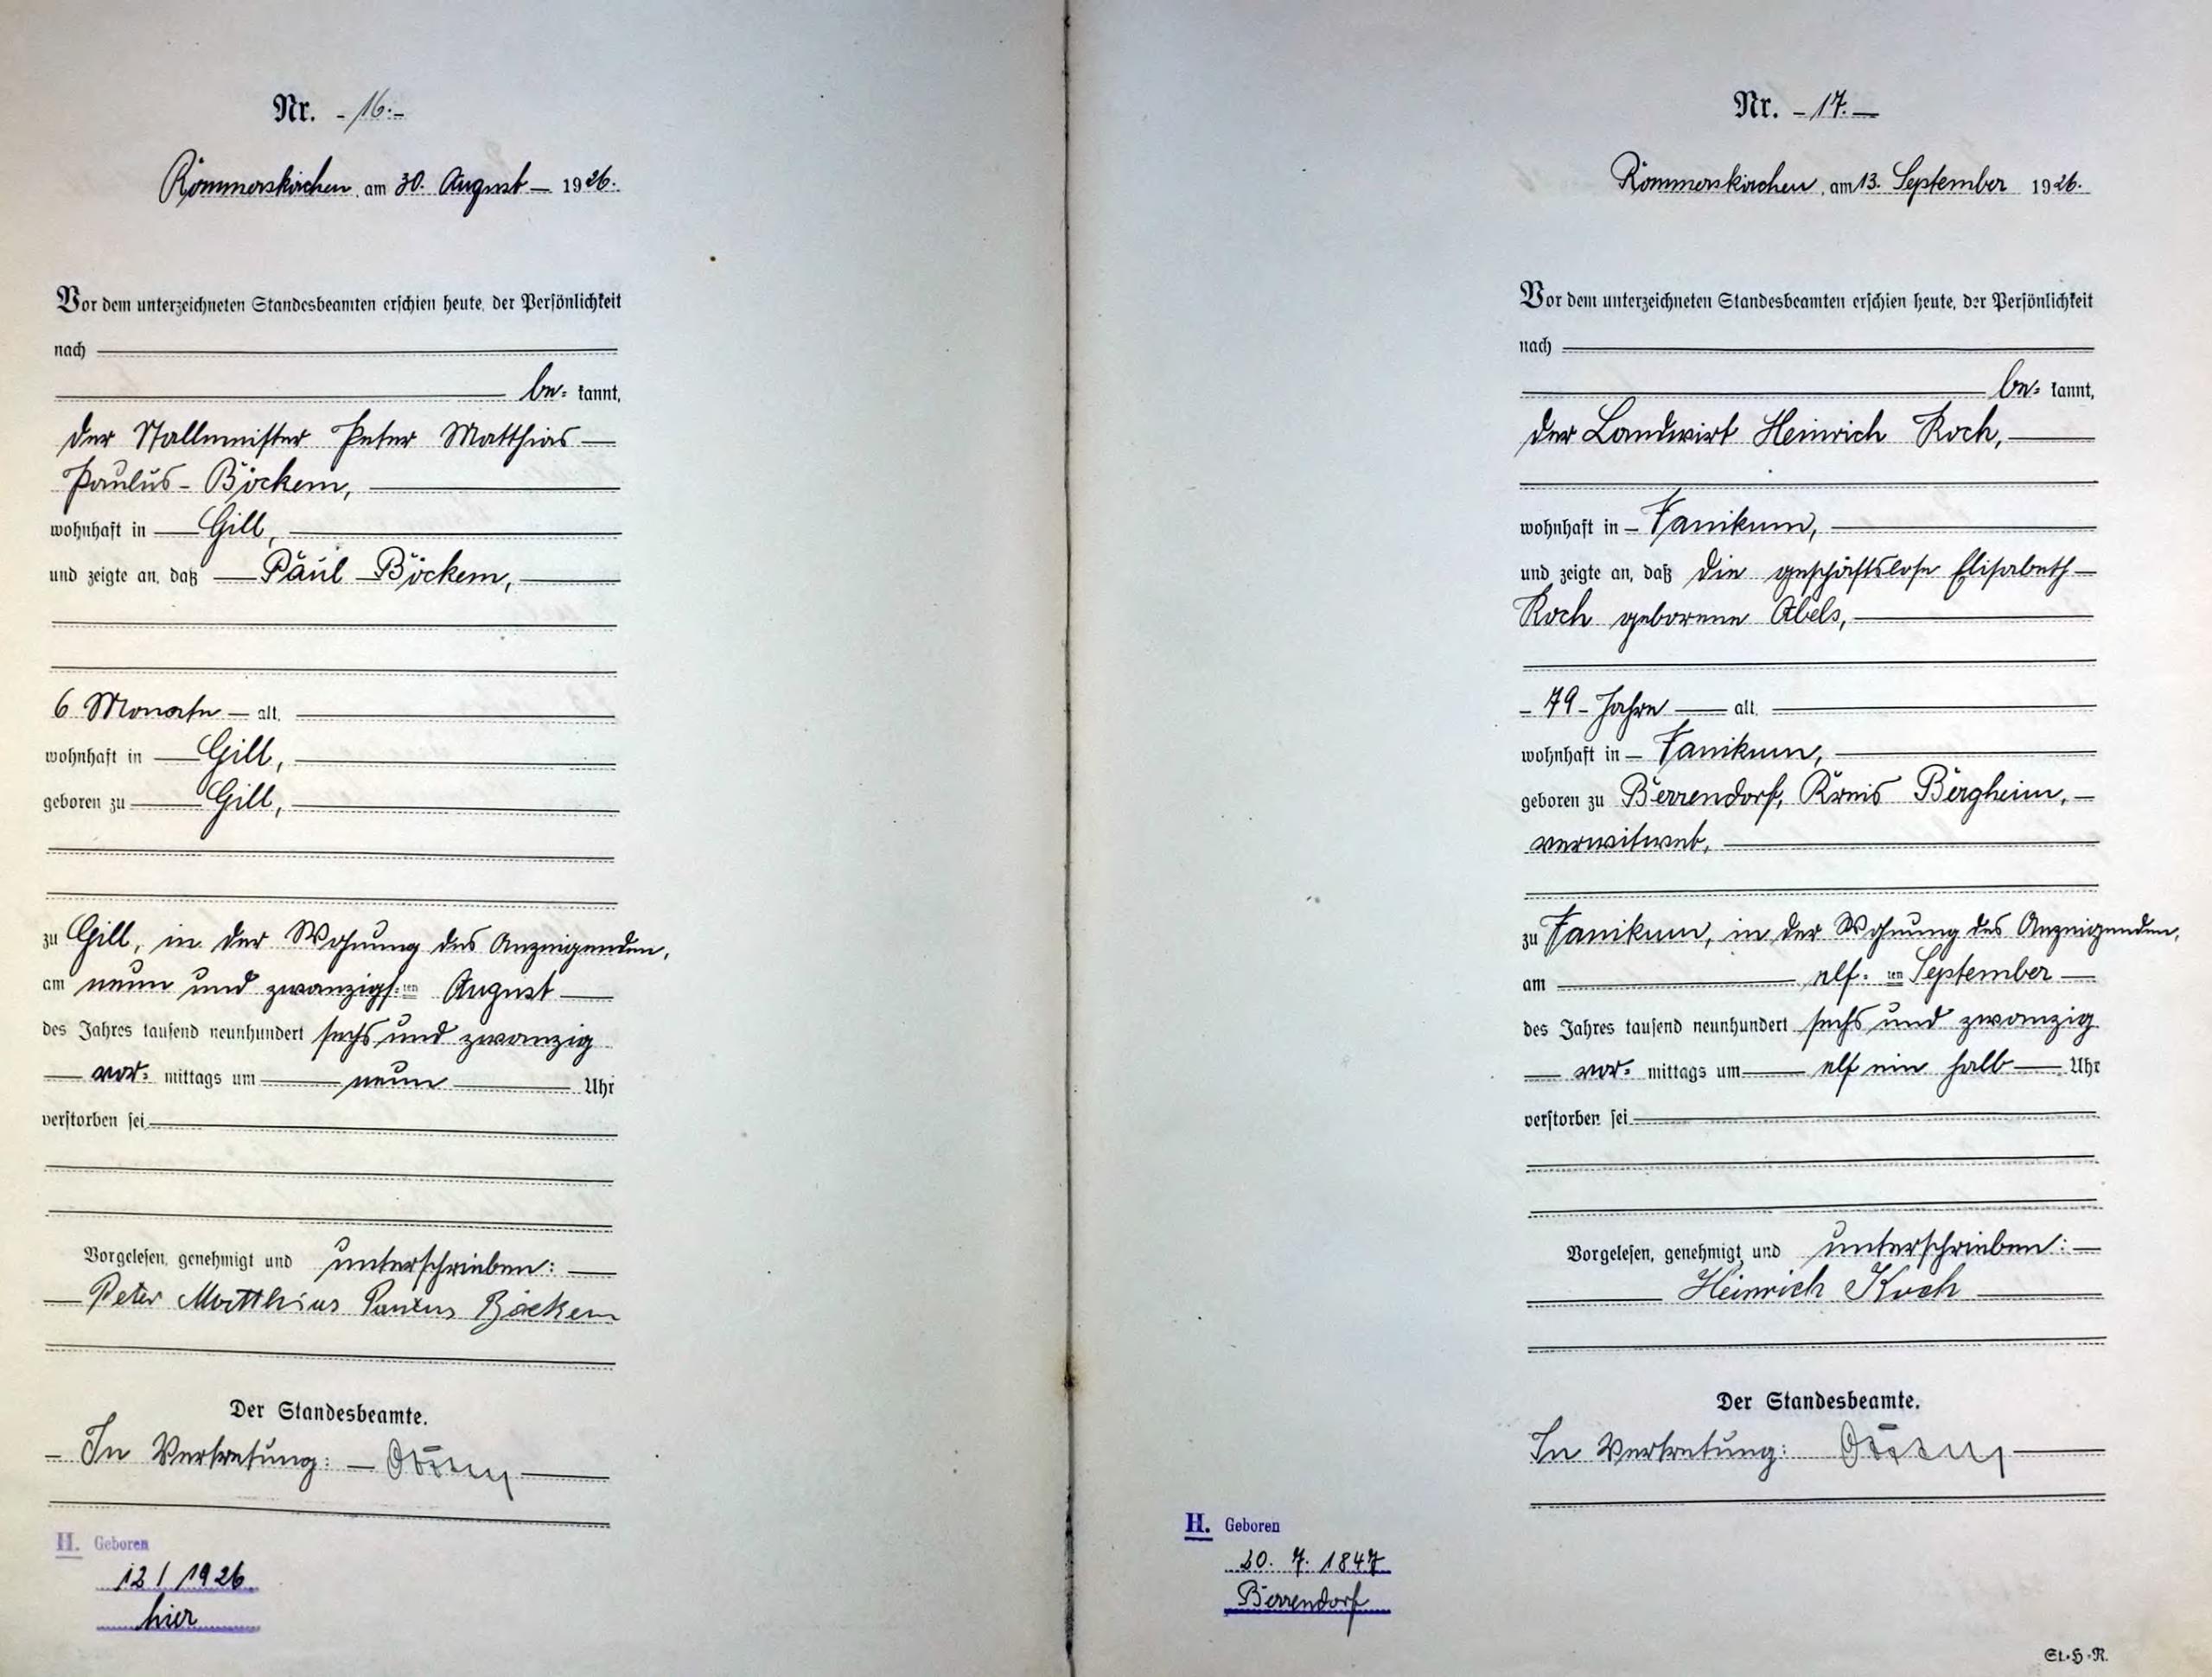 Nr. - 16. -
Rommerskirchen, am 30. August — 1926.
Vor dem unterzeichneten Standesbeamten erschien heute, der Persönlichkeit
nach
be= kannt,
der Stallmeister Peter Matthias
Paulus - Böckem,
wohnhaft in Gill,
und zeigte an, daß Paul Böckem,
6 Monate alt,
wohnhaft in Gill,
geboren zu Gill,
zu Gill, in der Wohnung des Anzeigenden,
am neun und zwanzigs=ten August
des Jahres tausend neunhundert sechs und zwanzig
vor= mittags um neun Uhr
verstorben sei
Vorgelesen, genehmigt und unterschrieben:
Peter Matthias Paulus Böckem
Der Standesbeamte.
- In Vertretung:
H. Geboren
12 / 1926
hier
Nr. - 17. —
Rommerskirchen, am 13. September 1926.
Vor dem unterzeichneten Standesbeamten erschien heute, der Persönlichkeit
nach
be= kannt,
der Landwirt Heinrich Koch,
wohnhaft in Vanikum,
und zeigte an, daß die geschäftslose Elisabeth
Koch geborene Abels,
- 79 - Jahre alt,
wohnhaft in Vanikum,
geboren zu Berrendorf, Kreis Bergheim,
verwitwet,
zu Vanikum, in der Wohnung des Anzeigenden,
am elf= ten September
des Jahres tausend neunhundert sechs und zwanzig
vor= mittags um elf ein halb Uhr
verstorben sei
Vorgelesen, genehmigt und unterschrieben:
Heinrich Koch
Der Standesbeamte.
In Vertretung:
H. Geboren
20. 7. 1847
Berrendorf
St.H.R.